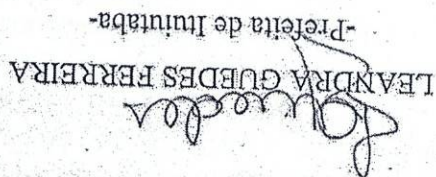 LEANDRA GUEDES FERREIRA
-Prefeita de Ituiutaba-